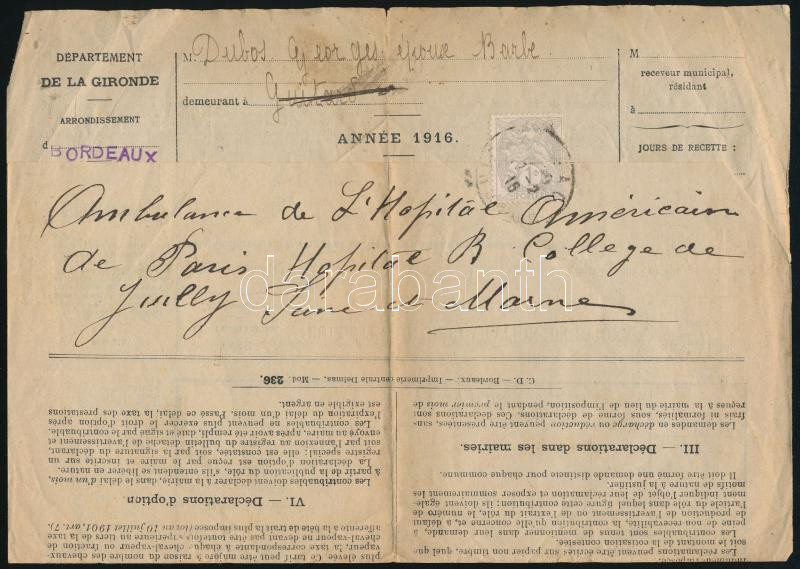 DÉPARTEMENT
DE LA GIRONDE
ARRONDISSEMENT
d
BORDEAUX
M. Dubos Georges époux Barbe
demeurant à Guitard
ANNÉE 1916.
M
receveur municipal,
résidant
à
JOURS DE RECETTE :
Ambulance de L'Hopital Américain
de Paris Hopital B College de
Juilly Seine et Marne
darabanth
C. D. — Bordeaux. — Imprimerie centrale Delmas. — Mod. 236.
III. — Déclarations dans les mairies.
Les demandes en décharge ou réduction peuvent être présentées, sans
frais ni formalités, sous forme de déclarations. Ces déclarations sont
reçues à la mairie du lieu de l'imposition, pendant le premier mois de
Il doit être formé une demande distincte pour chaque commune.
motifs de nature à la justifier.
ment indiquer l'objet de leur réclamation et exposer sommairement les
l'article du rôle dans lequel figure cette contribution; ils doivent également
de production de l'avertissement ou de l'extrait du rôle, le numéro de
peine de non recevabilité, la contribution qu'elle concerne et, à défaut
Les contribuables sont tenus de mentionner dans leur demande, à
soit le montant de la cotisation contestée.
réclamations peuvent être écrites sur papier non timbré, quel que
VI. — Déclarations d'option.
Les contribuables doivent déclarer à la mairie, dans le délai d'un mois,
à partir de la publication du rôle, s'ils entendent se libérer en nature.
La déclaration d'option est reçue par le maire et inscrite sur un
registre spécial; elle est constatée, soit par la signature du déclarant,
soit par l'annexion au registre du bulletin détaché de l'avertissement et
envoyé au maire, après avoir été rempli, daté et signé par le contribuable.
Les contribuables ne peuvent plus exercer le droit d'option après
l'expiration du délai d'un mois. Passé ce délai, la taxe des prestations
est exigible en argent.
afférente à la bête de trait la plus imposée (loi du 10 juillet 1901, art. 7).
cheval-vapeur ne devant pas être toutefois supérieure au tiers de la taxe
vapeur, la taxe correspondante à chaque cheval-vapeur ou fraction de
plus élevée. Ce tarif peut être gradué à raison du nombre des chevaux-